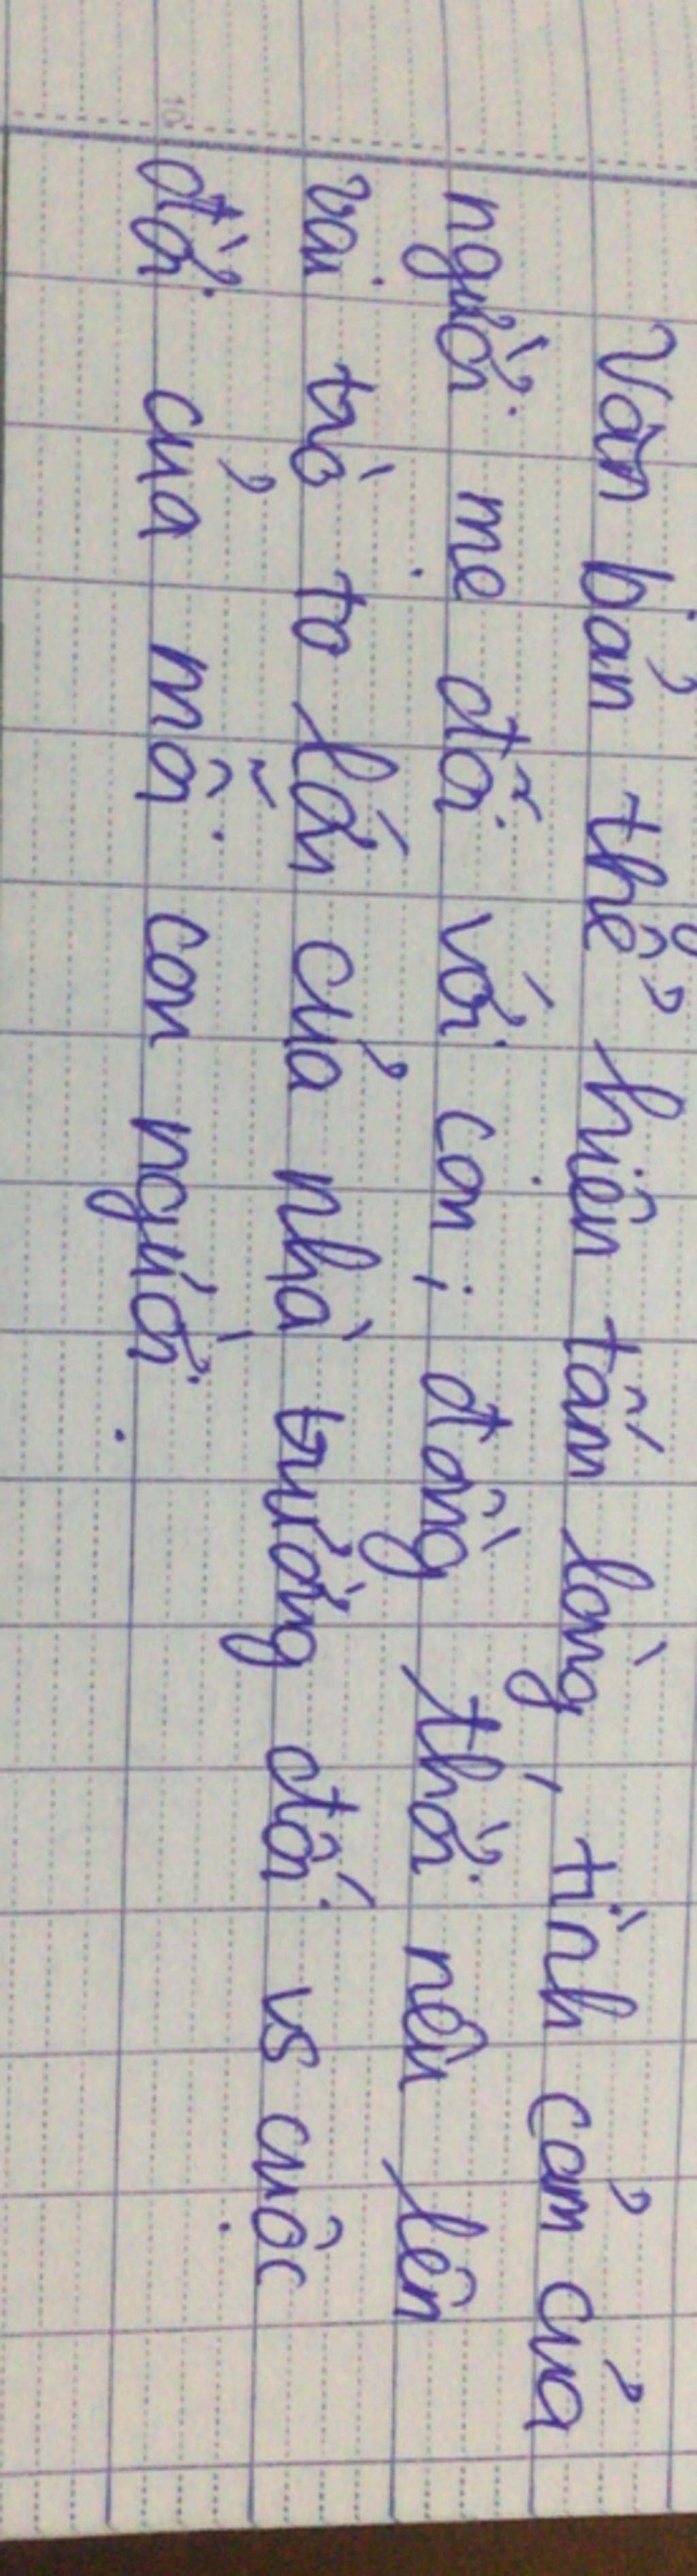 Văn bản thể hiện tấm lòng, tình cảm của
người mẹ đối với con; đồng thời nêu lên
vai trò to lớn của nhà trường đối vs cuộc
đời của mỗi con người.